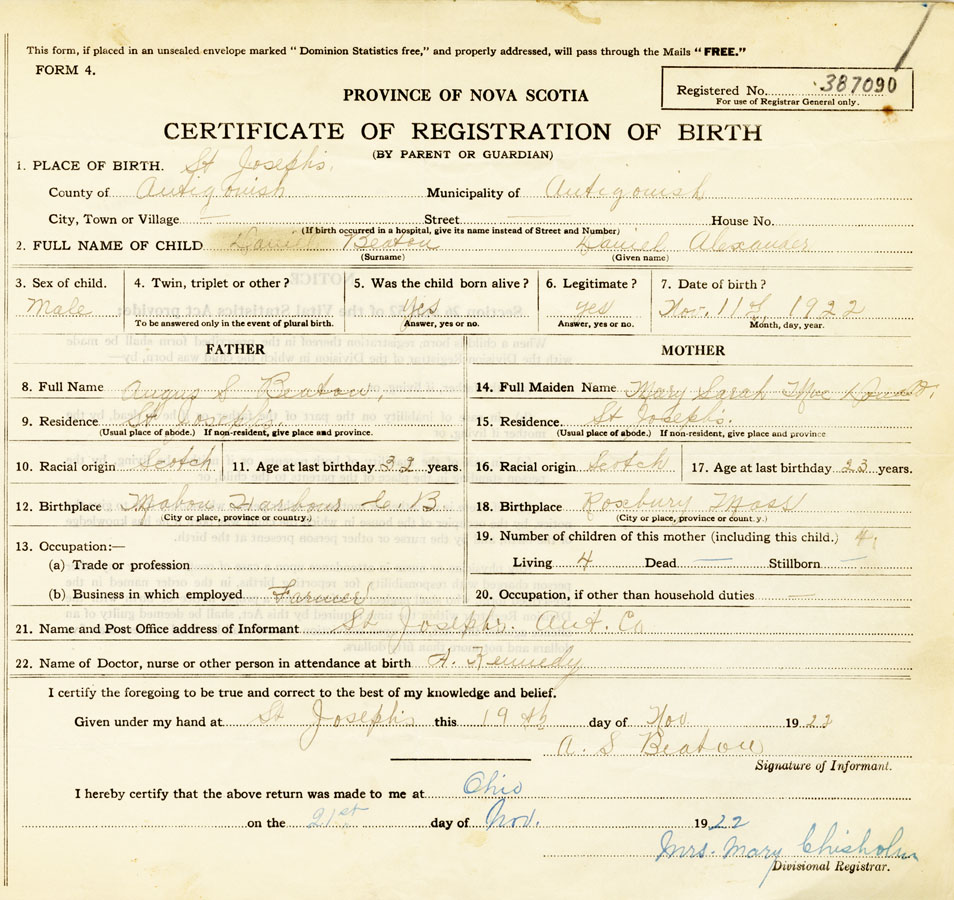 This form, if placed in an unsealed envelope marked "Dominion Statistics free," and properly addressed, will pass through the Mails "FREE."
FORM 4.
Registered No. 387090
For use of Registrar General only.
PROVINCE OF NOVA SCOTIA
CERTIFICATE OF REGISTRATION OF BIRTH
(BY PARENT OR GUARDIAN)
1. PLACE OF BIRTH. St Joseph's.
County of Antigonish Municipality of Antigonish
City, Town or Village — Street — House No.
(If birth occurred in a hospital, give its name instead of Street and Number)
2. FULL NAME OF CHILD Daniel Beaton Daniel Alexander
(Surname) (Given name)
3. Sex of child. 4. Twin, triplet or other? 5. Was the child born alive? 6. Legitimate? 7. Date of birth?
Male Yes yes Nov. 11th, 1922
To be answered only in the event of plural birth. Answer, yes or no. Answer, yes or no. Month, day, year.
FATHER MOTHER
8. Full Name Angus S Beaton, 14. Full Maiden Name Mary Sarah
9. Residence St Joseph's. 15. Residence. St Joseph's.
(Usual place of abode.) If non-resident, give place and province. (Usual place of abode.) If non-resident, give place and province
10. Racial origin Scotch 11. Age at last birthday 32 years. 16. Racial origin Scotch 17. Age at last birthday 23 years.
12. Birthplace Mabou Harbour C. B. 18. Birthplace Roxbury Mass
(City or place, province or country.) (City or place, province or country.)
13. Occupation:— 19. Number of children of this mother (including this child.) 4
(a) Trade or profession Living 4 Dead — Stillborn —
(b) Business in which employed Farmer 20. Occupation, if other than household duties —
21. Name and Post Office address of Informant St Josephs. Ant. Co
22. Name of Doctor, nurse or other person in attendance at birth A. Kennedy
I certify the foregoing to be true and correct to the best of my knowledge and belief.
Given under my hand at St Joseph's this 19th day of Nov 1922
A. S Beaton
Signature of Informant.
I hereby certify that the above return was made to me at Ohio
on the 21st day of Nov. 1922
Mrs. Mary Chisholm
Divisional Registrar.